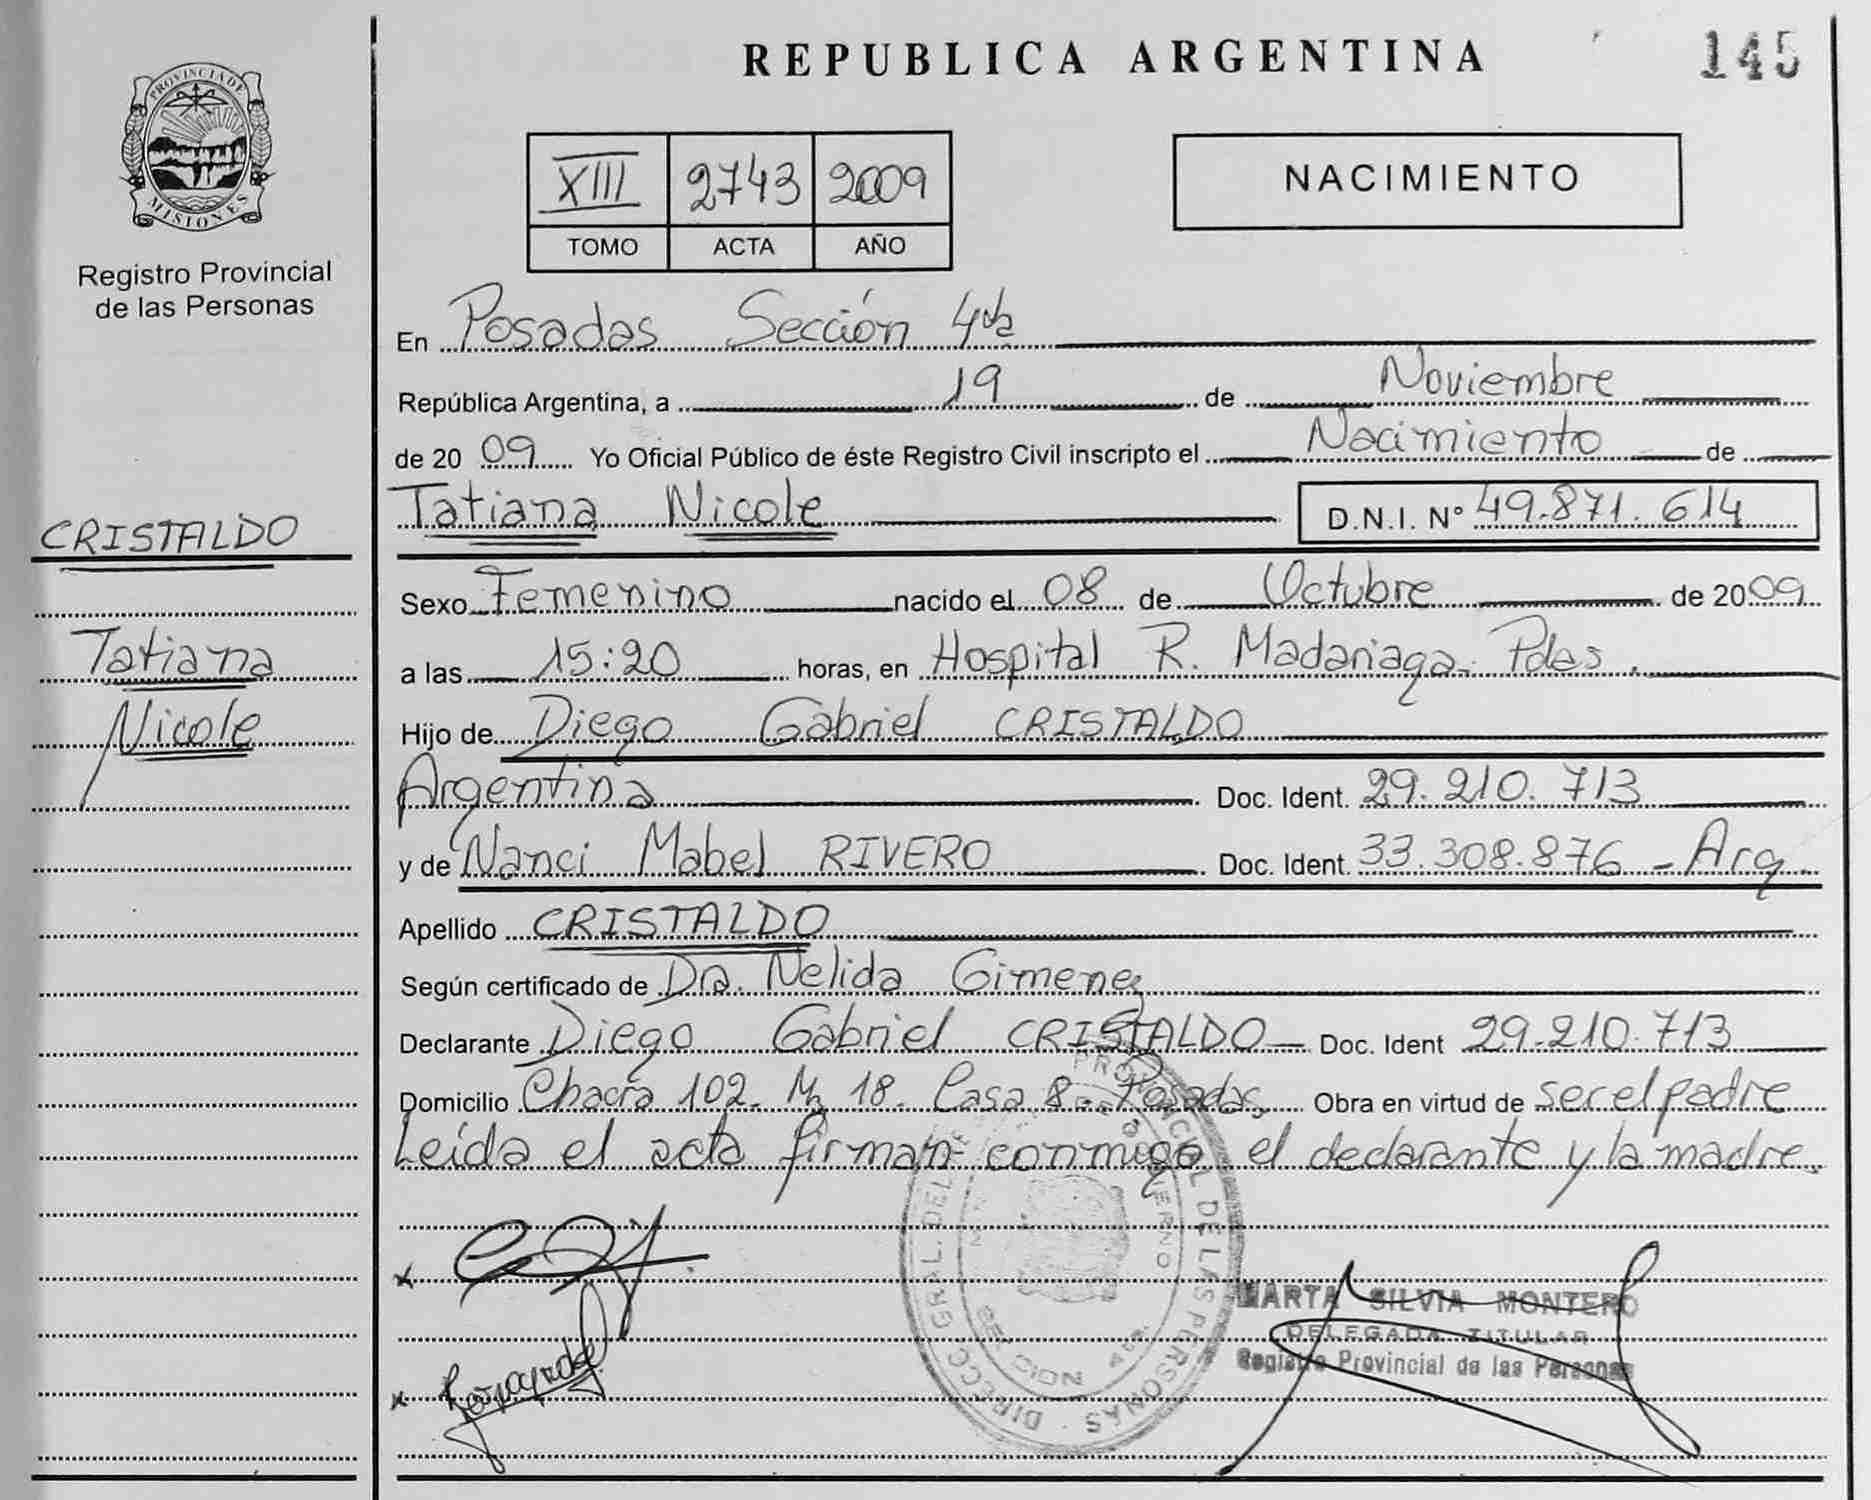 PROVINCIA DE
MISIONES
Registro Provincial
de las Personas
CRISTALDO
Tatiana
Nicole
REPUBLICA ARGENTINA
145
XIII 2743 2009
TOMO ACTA AÑO
NACIMIENTO
En Posadas Sección 4ta
República Argentina, a 19 de Noviembre
de 2009 Yo Oficial Público de éste Registro Civil inscripto el Nacimiento de
Tatiana Nicole D.N.I. Nº 49.871.614
Sexo Femenino nacido el 08 de Octubre de 2009
a las 15:20 horas, en Hospital R. Madariaga. Pdas.
Hijo de Diego Gabriel CRISTALDO
Argentina Doc. Ident. 29.210.713
y de Nanci Mabel RIVERO Doc. Ident. 33.308.876 - Arg.
Apellido CRISTALDO
Según certificado de Dra. Nelida Gimenez
Declarante Diego Gabriel CRISTALDO Doc. Ident 29.210.713
Domicilio Chacra 102. Mz 18. Casa 8. Posadas. Obra en virtud de ser el padre
Leída el acta firman conmigo el declarante y la madre.
DIRECC. GRAL. DEL PROVINCIAL DE LAS PERSONAS
MARTA SILVIA MONTERO
DELEGADA TITULAR
Registro Provincial de las Personas